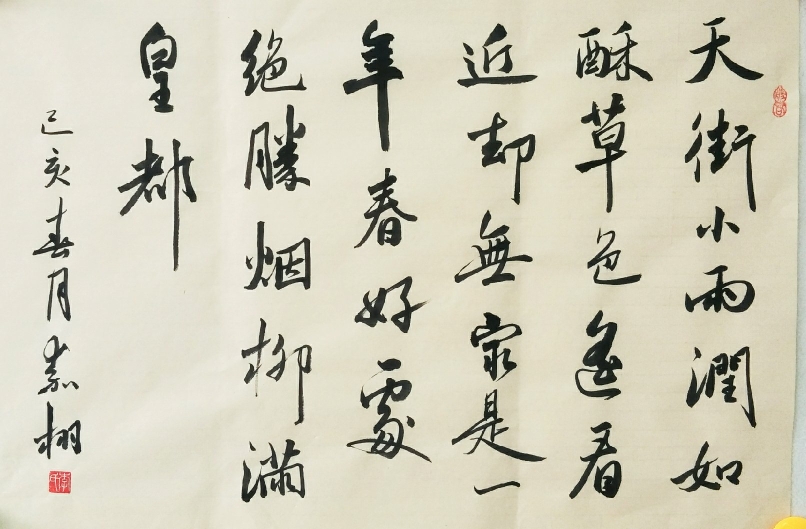 天街小雨潤如
酥草色遙看
近却無最是一
年春好處
绝勝烟柳滿
皇都
己亥春月嘉栩